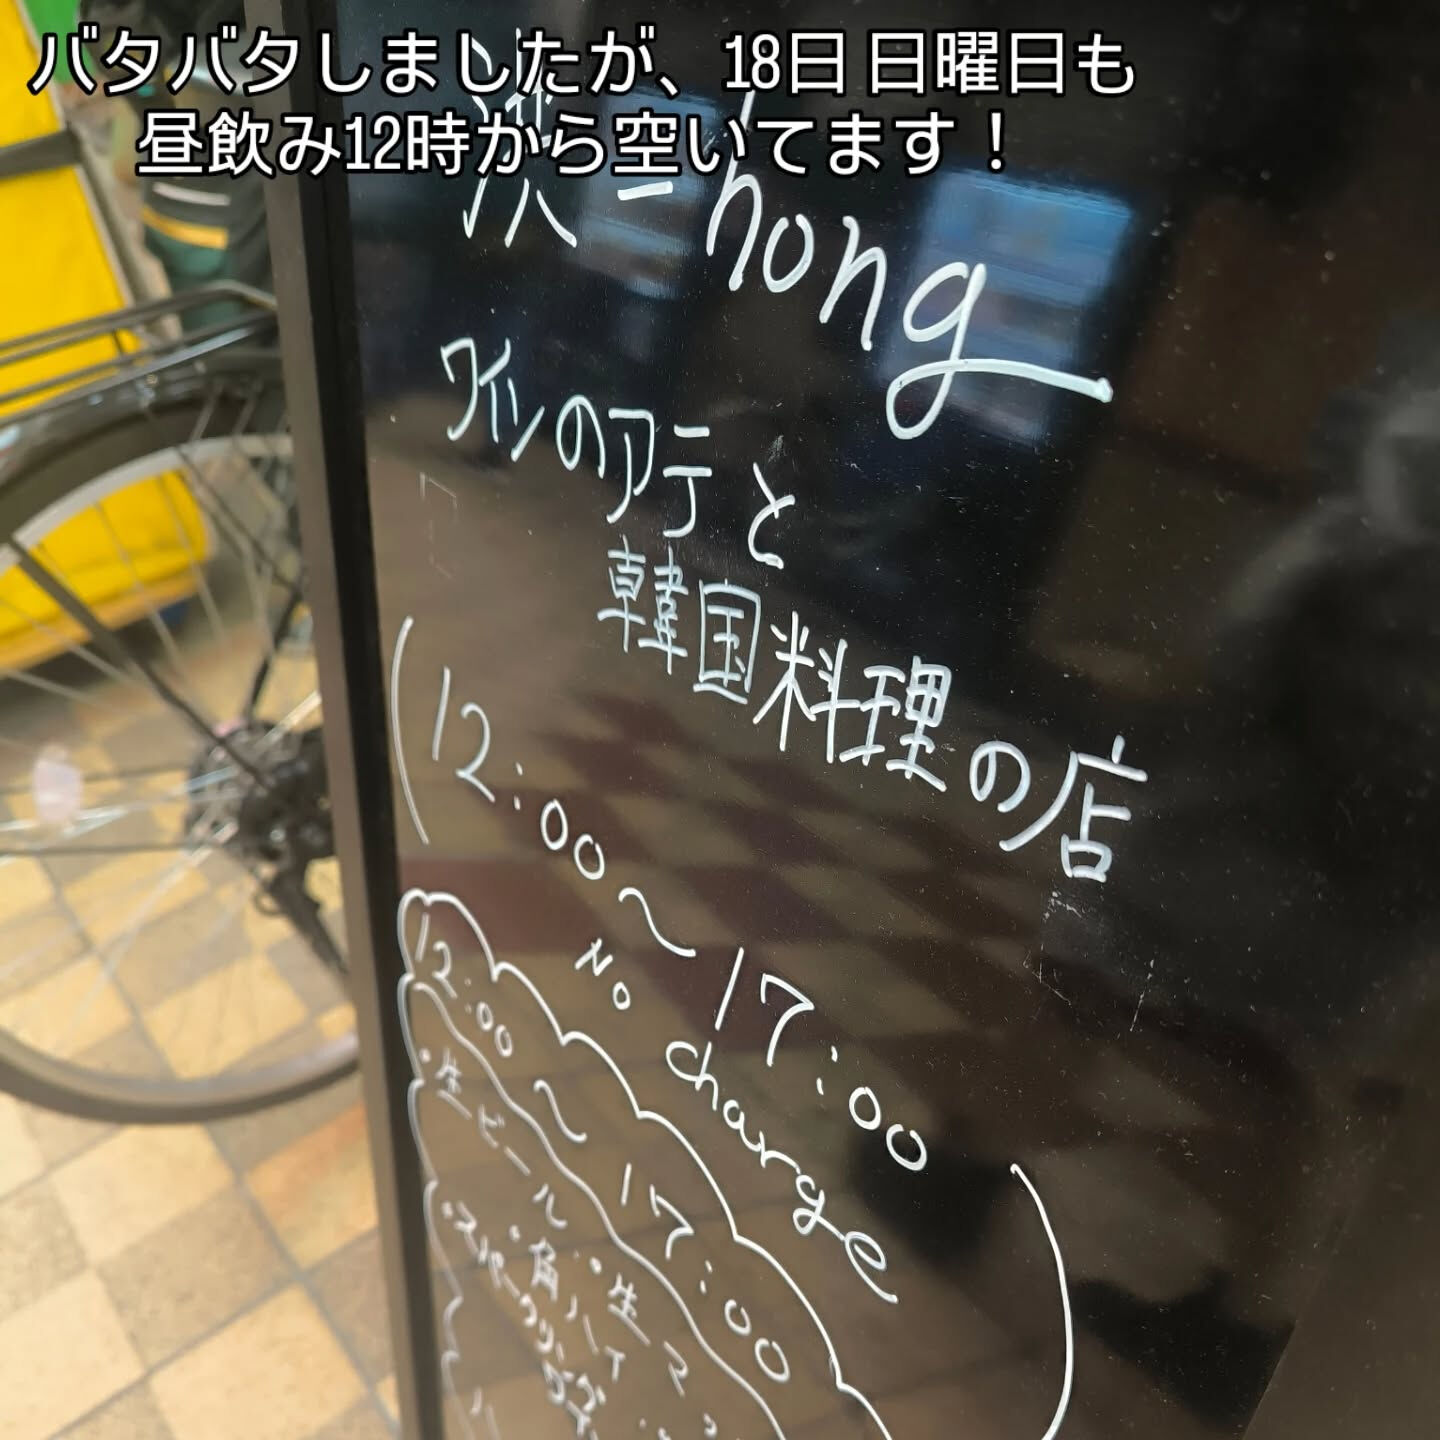 バタバタしましたが、18日 日曜日も
昼飲み12時から空いてます！
洪-hong
ワインのアテと
韓国料理の店
(12:00〜17:00
No charge)
12:00〜17:00
・生ビール・生
・角ハイ
・スパークリング